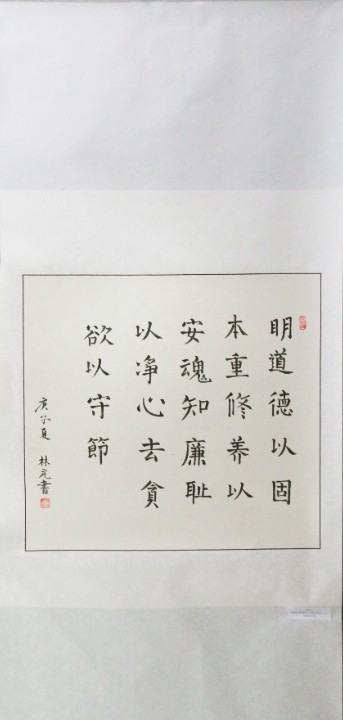 明道德以固
本重修养以
安魂知廉耻
以净心去貪
欲以守節
庚子夏 林元書